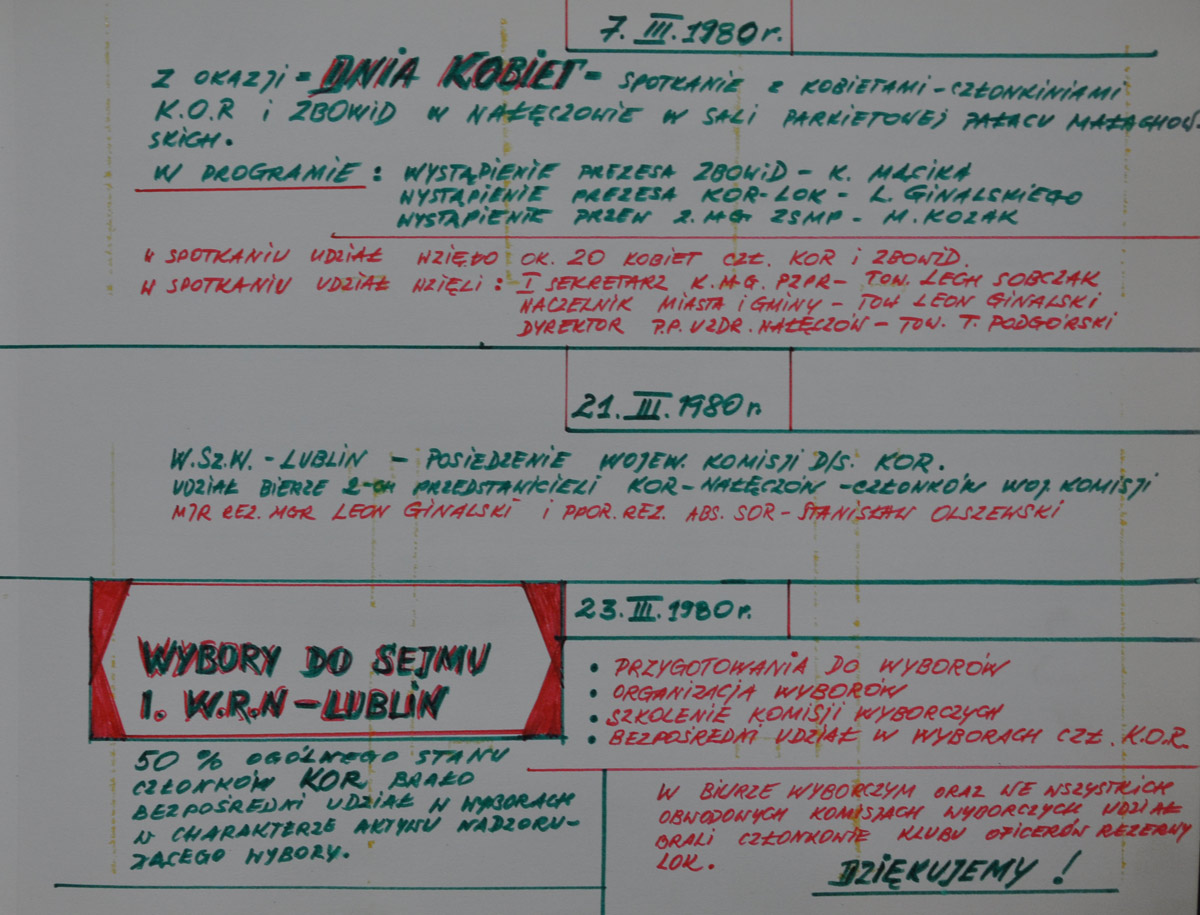 7. III. 1980 r.
Z OKAZJI = DNIA KOBIET = SPOTKANIE Z KOBIETAMI - CZŁONKINIAMI
K.O.R i ZBOWiD W NAŁĘCZOWIE W SALI PARKIETOWEJ PAŁACU MAŁACHOW-
SKICH.
W PROGRAMIE : WYSTĄPIENIE PREZESA ZBOWiD - K. MĄCIKA
WYSTĄPIENIE PREZESA KOR-LOK - L. GINALSKIEGO
WYSTĄPIENIE PRZEW Z.MG ZSMP - M. KOZAK
W SPOTKANIU UDZIAŁ WZIĘŁO OK. 20 KOBIET CZŁ. KOR i ZBOWiD.
W SPOTKANIU UDZIAŁ WZIĘLI : I SEKRETARZ K.M.G. PZPR - TOW. LECH SOBCZAK
NACZELNIK MIASTA i GMINY - TOW LEON GINALSKI
DYREKTOR P.P. UZDR. NAŁĘCZÓW - TOW. T. PODGÓRSKI
21. III. 1980 r.
W.Sz.W. - LUBLIN - POSIEDZENIE WOJEW. KOMISJI D/S. KOR.
UDZIAŁ BIERZE 2-CH PRZEDSTAWICIELI KOR-NAŁĘCZÓW - CZŁONKÓW WOJ. KOMISJI
MJR REZ. MGR LEON GINALSKI i PPOR. REZ. ABS. SOR - STANISŁAW OLSZEWSKI
23. III. 1980 r.
WYBORY DO SEJMU
I. W.R.N - LUBLIN
• PRZYGOTOWANIA DO WYBORÓW
• ORGANIZACJA WYBORÓW
• SZKOLENIE KOMISJI WYBORCZYCH
• BEZPOŚREDNI UDZIAŁ W WYBORACH CZŁ. K.O.R.
50 % OGÓLNEGO STANU
CZŁONKÓW KOR BRAŁO
BEZPOŚREDNI UDZIAŁ W WYBORACH
W CHARAKTERZE AKTYWU NADZORU-
JĄCEGO WYBORY.
W BIURZE WYBORCZYM ORAZ WE WSZYSTKICH
OBWODOWYCH KOMISJACH WYBORCZYCH UDZIAŁ
BRALI CZŁONKOWIE KLUBU OFICERÓW REZERWY
LOK.
DZIĘKUJEMY !